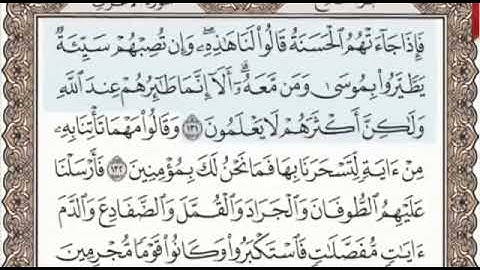 فَإِذَا جَآءَتْهُمُ ٱلْحَسَنَةُ قَالُوا۟ لَنَا هَٰذِهِۦ ۖ وَإِن تُصِبْهُمْ سَيِّئَةٌ
يَطَّيَّرُوا۟ بِمُوسَىٰ وَمَن مَّعَهُۥٓ ۗ أَلَآ إِنَّمَا طَٰٓئِرُهُمْ عِندَ ٱللَّهِ
وَلَٰكِنَّ أَكْثَرَهُمْ لَا يَعْلَمُونَ ١٣١ وَقَالُوا۟ مَهْمَا تَأْتِنَا بِهِۦ
مِنْ ءَايَةٍ لِّتَسْحَرَنَا بِهَا فَمَا نَحْنُ لَكَ بِمُؤْمِنِينَ ١٣٢ فَأَرْسَلْنَا
عَلَيْهِمُ ٱلطُّوفَانَ وَٱلْجَرَادَ وَٱلْقُمَّلَ وَٱلضَّفَادِعَ وَٱلدَّمَ
ءَايَٰتٍ مُّفَصَّلَٰتٍ فَٱسْتَكْبَرُوا۟ وَكَانُوا۟ قَوْمًا مُّجْرِمِينَ